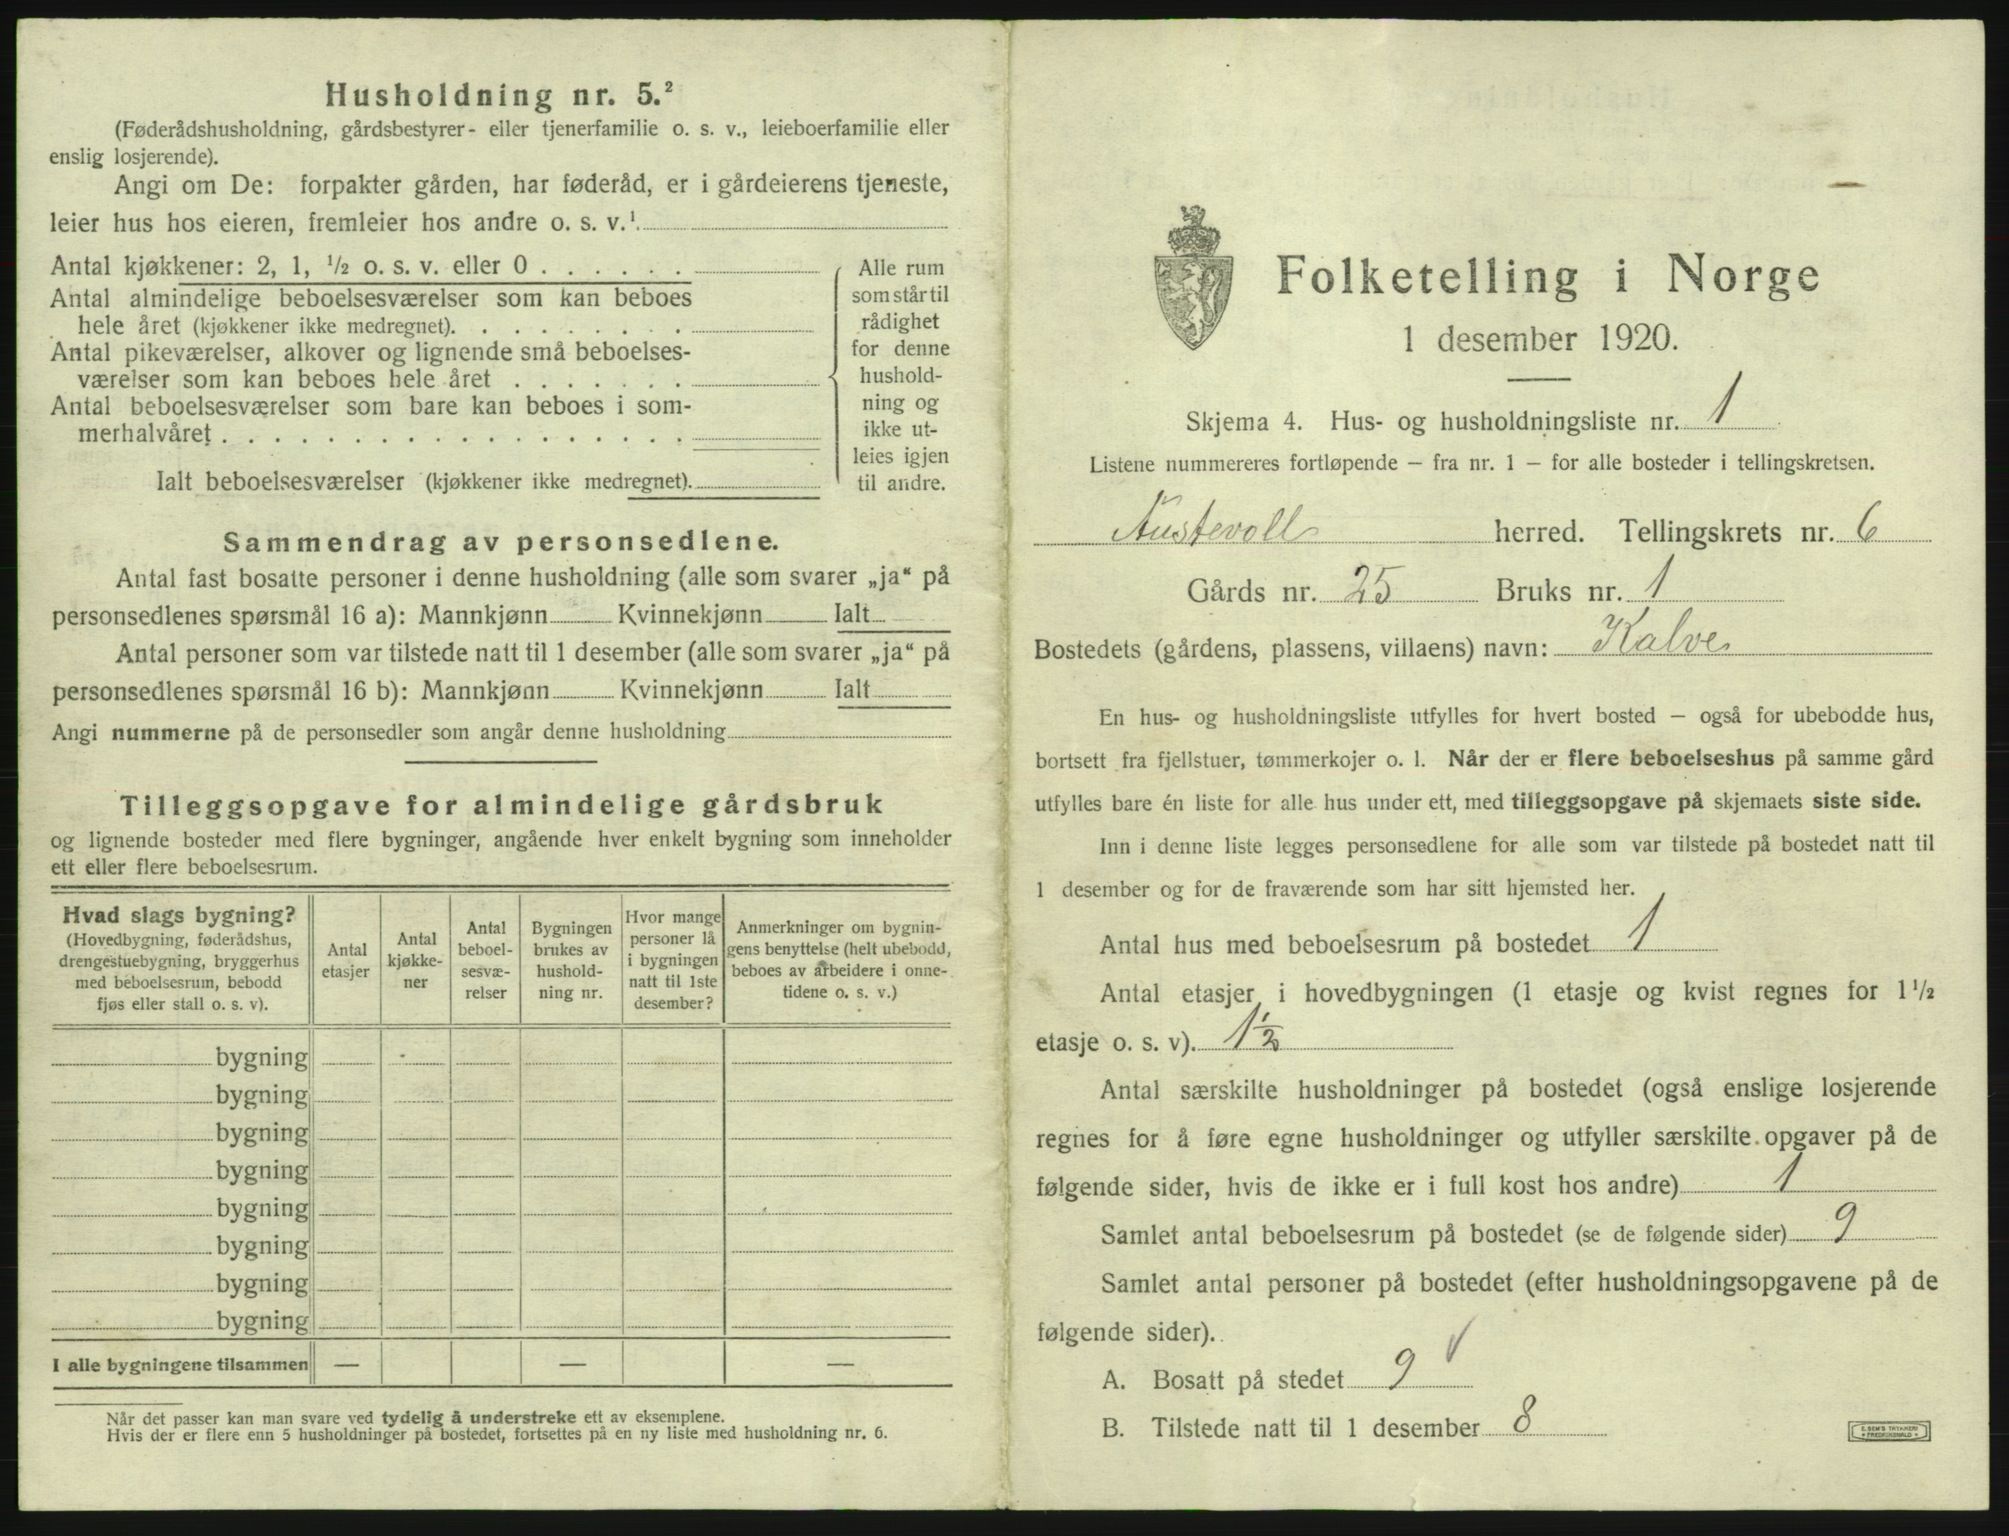 Husholdning nr. 5.²
(Føderådshusholdning, gårdsbestyrer- eller tjenerfamilie o. s. v., leieboerfamilie eller
enslig losjerende).
Angi om De: forpakter gården, har føderåd, er i gårdeierens tjeneste,
leier hus hos eieren, fremleier hos andre o. s. v.¹
Antal kjøkkener: 2, 1, ½ o. s. v. eller 0
Antal almindelige beboelsesværelser som kan beboes
hele året (kjøkkener ikke medregnet).
Antal pikeværelser, alkover og lignende små beboelses-
værelser som kan beboes hele året
Antal beboelsesværelser som bare kan beboes i som-
merhalvåret
Ialt beboelsesværelser (kjøkkener ikke medregnet).
Alle rum
som står til
rådighet
for denne
hushold-
ning og
ikke ut-
leies igjen
til andre.
Sammendrag av personsedlene.
Antal fast bosatte personer i denne husholdning (alle som svarer „ja“ på
personsedlenes spørsmål 16 a): Mannkjønn Kvinnekjønn Ialt
Antal personer som var tilstede natt til 1 desember (alle som svarer „ja“ på
personsedlenes spørsmål 16 b): Mannkjønn Kvinnekjønn Ialt
Angi nummerne på de personsedler som angår denne husholdning
Tilleggsopgave for almindelige gårdsbruk
og lignende bosteder med flere bygninger, angående hver enkelt bygning som inneholder
ett eller flere beboelsesrum.
Hvad slags bygning?
(Hovedbygning, føderådshus,
drengestuebygning, bryggerhus
med beboelsesrum, bebodd
fjøs eller stall o. s. v).
Antal
etasjer
Antal
kjøkke-
ner
Antal
beboel-
sesvæ-
relser
Bygningen
brukes av
hushold-
ning nr.
Hvor mange
personer lå
i bygningen
natt til 1ste
desember?
Anmerkninger om bygnin-
gens benyttelse (helt ubebodd,
beboes av arbeidere i onne-
tidene o. s. v.)
bygning
bygning
bygning
bygning
bygning
bygning
bygning
bygning
I alle bygningene tilsammen — — —
Når det passer kan man svare ved tydelig å understreke ett av eksemplene.
Hvis der er flere enn 5 husholdninger på bostedet, fortsettes på en ny liste med husholdning nr. 6.
Folketelling i Norge
1 desember 1920.
Skjema 4. Hus- og husholdningsliste nr. 1
Listene nummereres fortløpende – fra nr. 1 – for alle bosteder i tellingskretsen.
Austevoll herred. Tellingskrets nr. 6
Gårds nr. 25 Bruks nr. 1
Bostedets (gårdens, plassens, villaens) navn: Kalve
En hus- og husholdningsliste utfylles for hvert bosted – også for ubebodde hus,
bortsett fra fjellstuer, tømmerkojer o. l. Når der er flere beboelseshus på samme gård
utfylles bare én liste for alle hus under ett, med tilleggsopgave på skjemaets siste side.
Inn i denne liste legges personsedlene for alle som var tilstede på bostedet natt til
1 desember og for de fraværende som har sitt hjemsted her.
Antal hus med beboelsesrum på bostedet 1
Antal etasjer i hovedbygningen (1 etasje og kvist regnes for 1½
etasje o. s. v). 1½
Antal særskilte husholdninger på bostedet (også enslige losjerende
regnes for å føre egne husholdninger og utfyller særskilte opgaver på de
følgende sider, hvis de ikke er i full kost hos andre) 1
Samlet antal beboelsesrum på bostedet (se de følgende sider) 9
Samlet antal personer på bostedet (efter husholdningsopgavene på de
følgende sider).
A. Bosatt på stedet 9 √
B. Tilstede natt til 1 desember 8
E. SEM'S TRYKKERI
• FREDRIKSHALD •